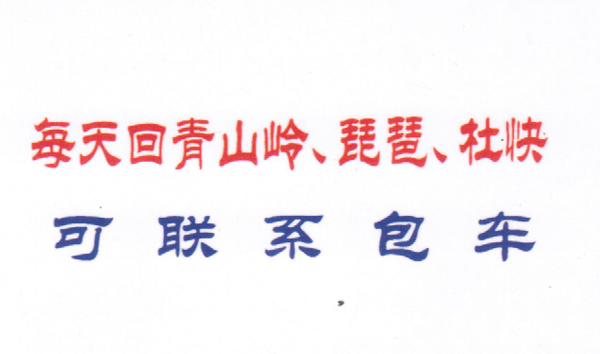 每天回青山岭、琵琶、杜快
可联系包车